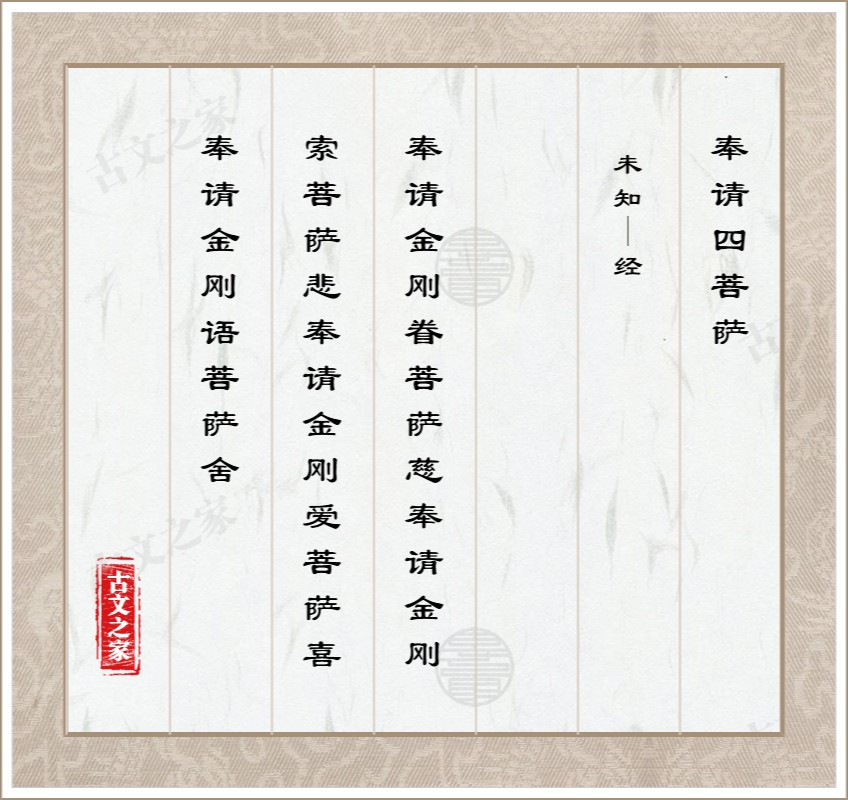 奉请四菩萨
未知—经
奉请金刚眷菩萨慈奉请金刚
索菩萨悲奉请金刚爱菩萨喜
奉请金刚语菩萨舍
古文之家
古文之家
古文之家